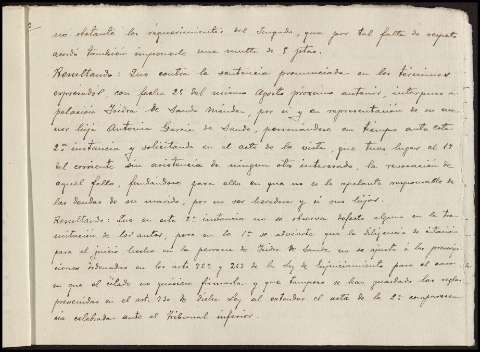 no obstante los requerimientos del Juzgado, que por tal falta de respeto
acordó también imponerle una multa de 5 ptas.
Resultando: Que contra la sentencia pronunciada en los términos
expresados con fecha 25 del mismo Agosto próximo anterior, interpuso a-
pelación Isidra de Sande, por sí y en representación de su me-
nor hija Antonia García de Sande, personándose en tiempo ante esta
2ª instancia y solicitando en el acto de la vista, que tuvo lugar el 1º
del corriente sin asistencia de ningún otro interesado, la revocación de
aquel fallo, fundándose para ello en que no es la apelante responsable de
las deudas de su marido, por no ser heredera y sí sus hijos.
Resultando: Que en esta 2ª instancia no se observa defecto alguno en la tra-
mitación de los autos, pero en la 1ª se advierte que la diligencia de citación
para el juicio hecha en la persona de Isidra de Sande no se ajustó a las prescrip-
ciones ordenadas en los arts. y 263 de la Ley de Enjuiciamiento para el caso
en que el citado no quisiere firmarla y que tampoco se han guardado las reglas
prevenidas en el art. 730 de dicha Ley al extender el acta de la 2ª comparecen-
cia celebrada ante el Tribunal inferior.